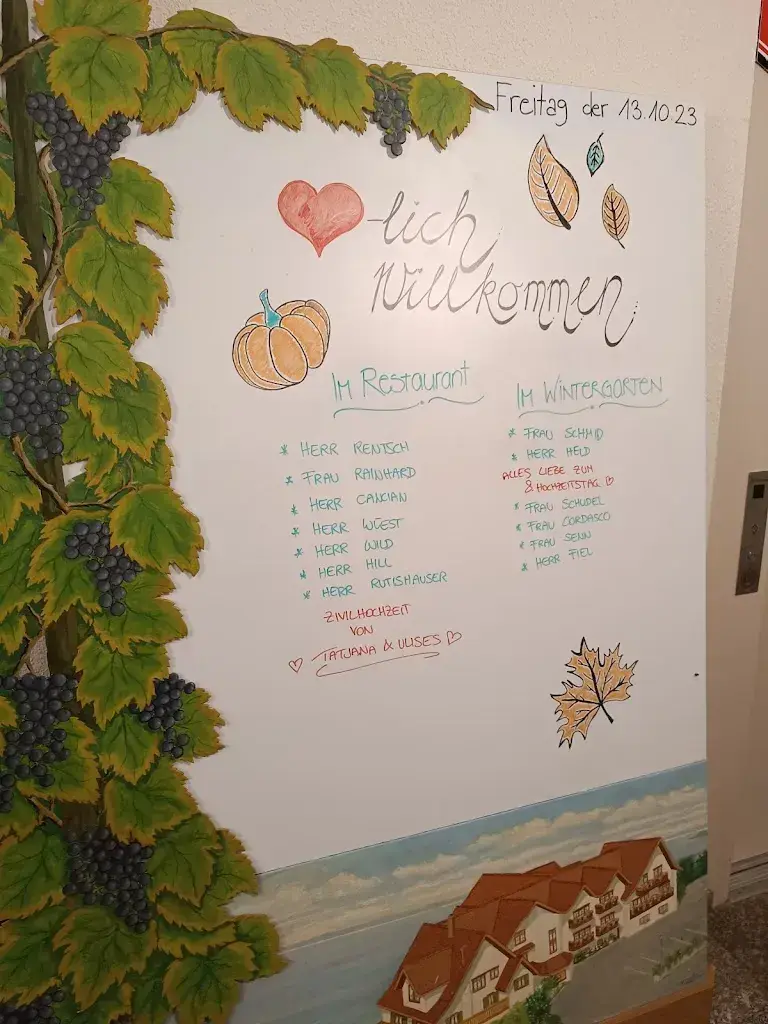 Freitag der 13.10.23
-lich
Willkommen
IM Restaurant
* HERR RENTSCH
* FRAU RAINHARD
* HERR CANCIAN
* HERR WÜEST
* HERR WILD
* HERR HILL
* HERR RUTISHAUSER
ZIVILHOCHZEIT
VON
TATJANA & ULISES
IM WINTERGARTEN
* FRAU SCHMID
* HERR HELD
ALLES LIEBE ZUM
8 HOCHZEITSTAG
* FRAU SCHUDEL
* FRAU CORDASCO
* FRAU SENN
* HERR FIEL